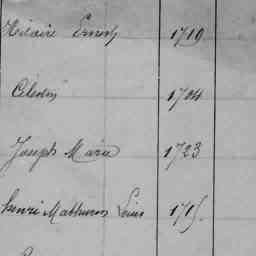 Hilaire Ernest 1719
Celestin 1704
Joseph Marie 1723
henri Mathurin Louis 1715.